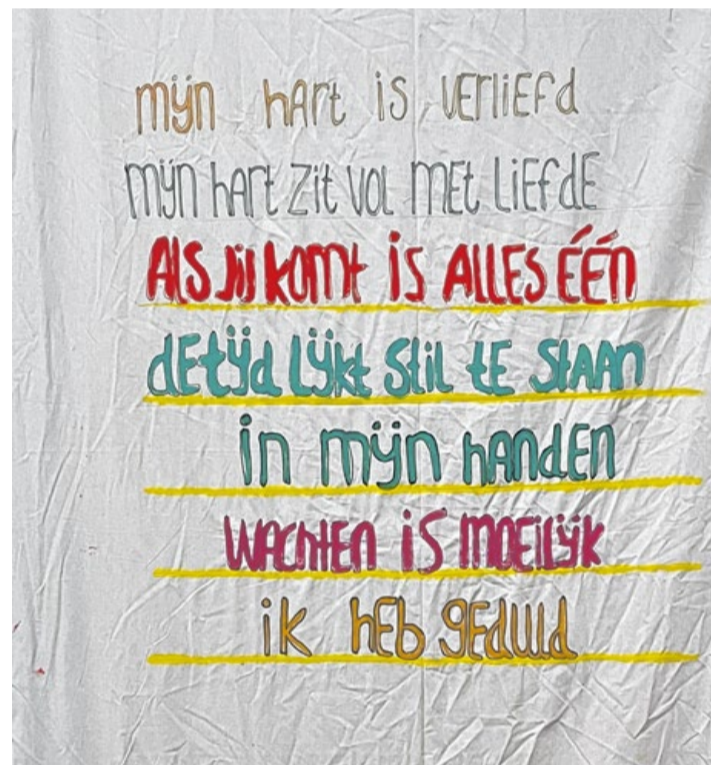 mijn hart is verliefd
mijn hart zit vol met liefde
Als jij komt is Alles één
de tijd lijkt stil te staan
in mijn handen
wachten is moeilijk
ik heb geduld